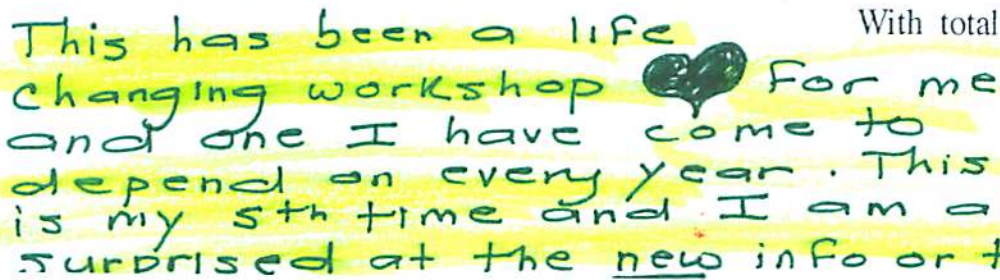 This has been a life
With total
changing workshop For me
and one I have come to
depend on every year. This
is my 5th time and I am a
surprised at the new info or t